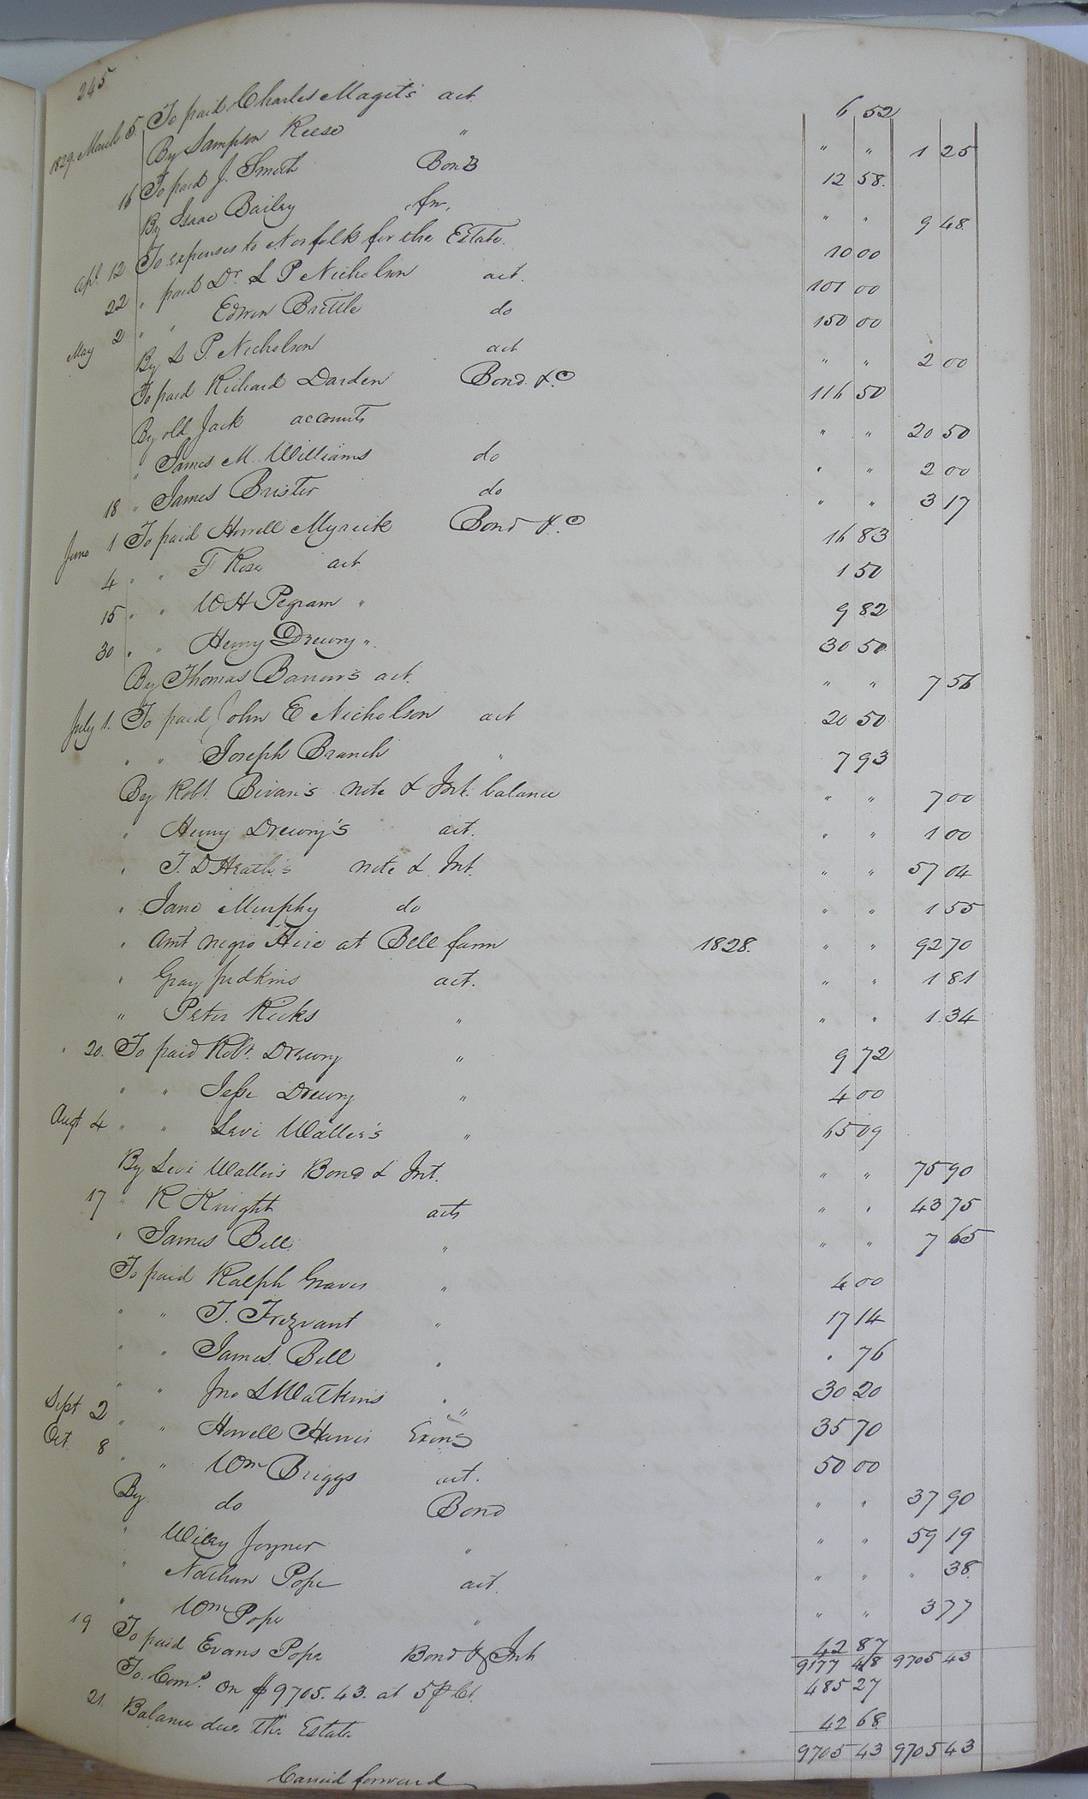 245
1829. March 5 To paid Charles Maget's act. 6 52
By Sampson Reese " " " 1 25
16 To paid J. Smith Bond 12 58.
By Isaac Bailey " " 9 48
Apl. 12 To expenses to Norfolk for the Estate. 10 00
22 " paid Dr. L P Nicholson act. 101 00
May 2 " " Edwin Brittle do 150 00
By L P. Nicholson act " " 2 00
To paid Richard Darden Bond &c 116 50
By old Jack accounts " " 20 50
" James M. Williams do " " 2 00
18 " James Brister do " " 3 17
June 1 To paid Howell Myrick Bond &c 16 83
4 " " F Rose act 1 50
15 " " W H Pegram " 9 82
30 " " Henry Drewry " 30 50
By Thomas Barrow's act. " " 7 56
July 1. To paid John E Nicholson act 20 50
" " Joseph Branch " 7 93
By Robt. Bivan's note & Int. balance " " 7 00
" Henry Drewry's act. " " 1 00
" J. D Heath's note & Int. " " 57 04
" Jane Murphy do " " 1 55
" Amt negro Hire at Bell farm 1828. " " 92 70
" Gray Judkins act. " " 1 81
" Peter Ricks " " " 1 34
" 20. To paid Robt. Drewry " 9 72
" " Jesse Drewry " 4 00
Augt 4 " " Levi Waller's " 65 09
By Levi Waller's Bond & Int. " " 75 90
17 " R Knight acts " " 43 75
" James Bell " " " 7 65
To paid Ralph Graves " 4 00
" " T. Trezvant " 17 14
" " James Bell " " 76
" " Jno L Watkins " 30 20
Sept 2 " " Howell Harris Exors " 35 70
Oct. 8 " " Wm Briggs act. 50 00
By do Bond " " 37 90
" Wiley Joyner " " " 59 19
" Nathan Pope act. " " " 38.
" Wm Pope " " " 3 77
19 To paid Evans Pope Bond & Int 42 87
9177 48 9705 43
To. Coms. on $9705.43. at 5 p Ct. 485 27
21 Balance due the Estate 42 68
9705 43 9705 43
Carried forward